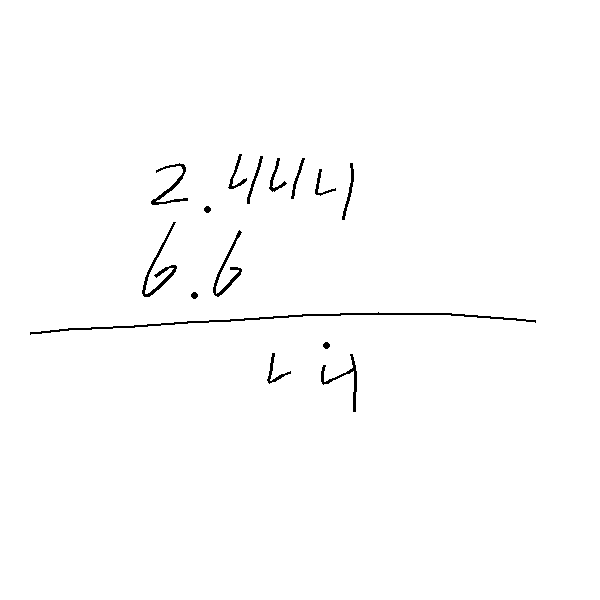 2.444
6.6
4